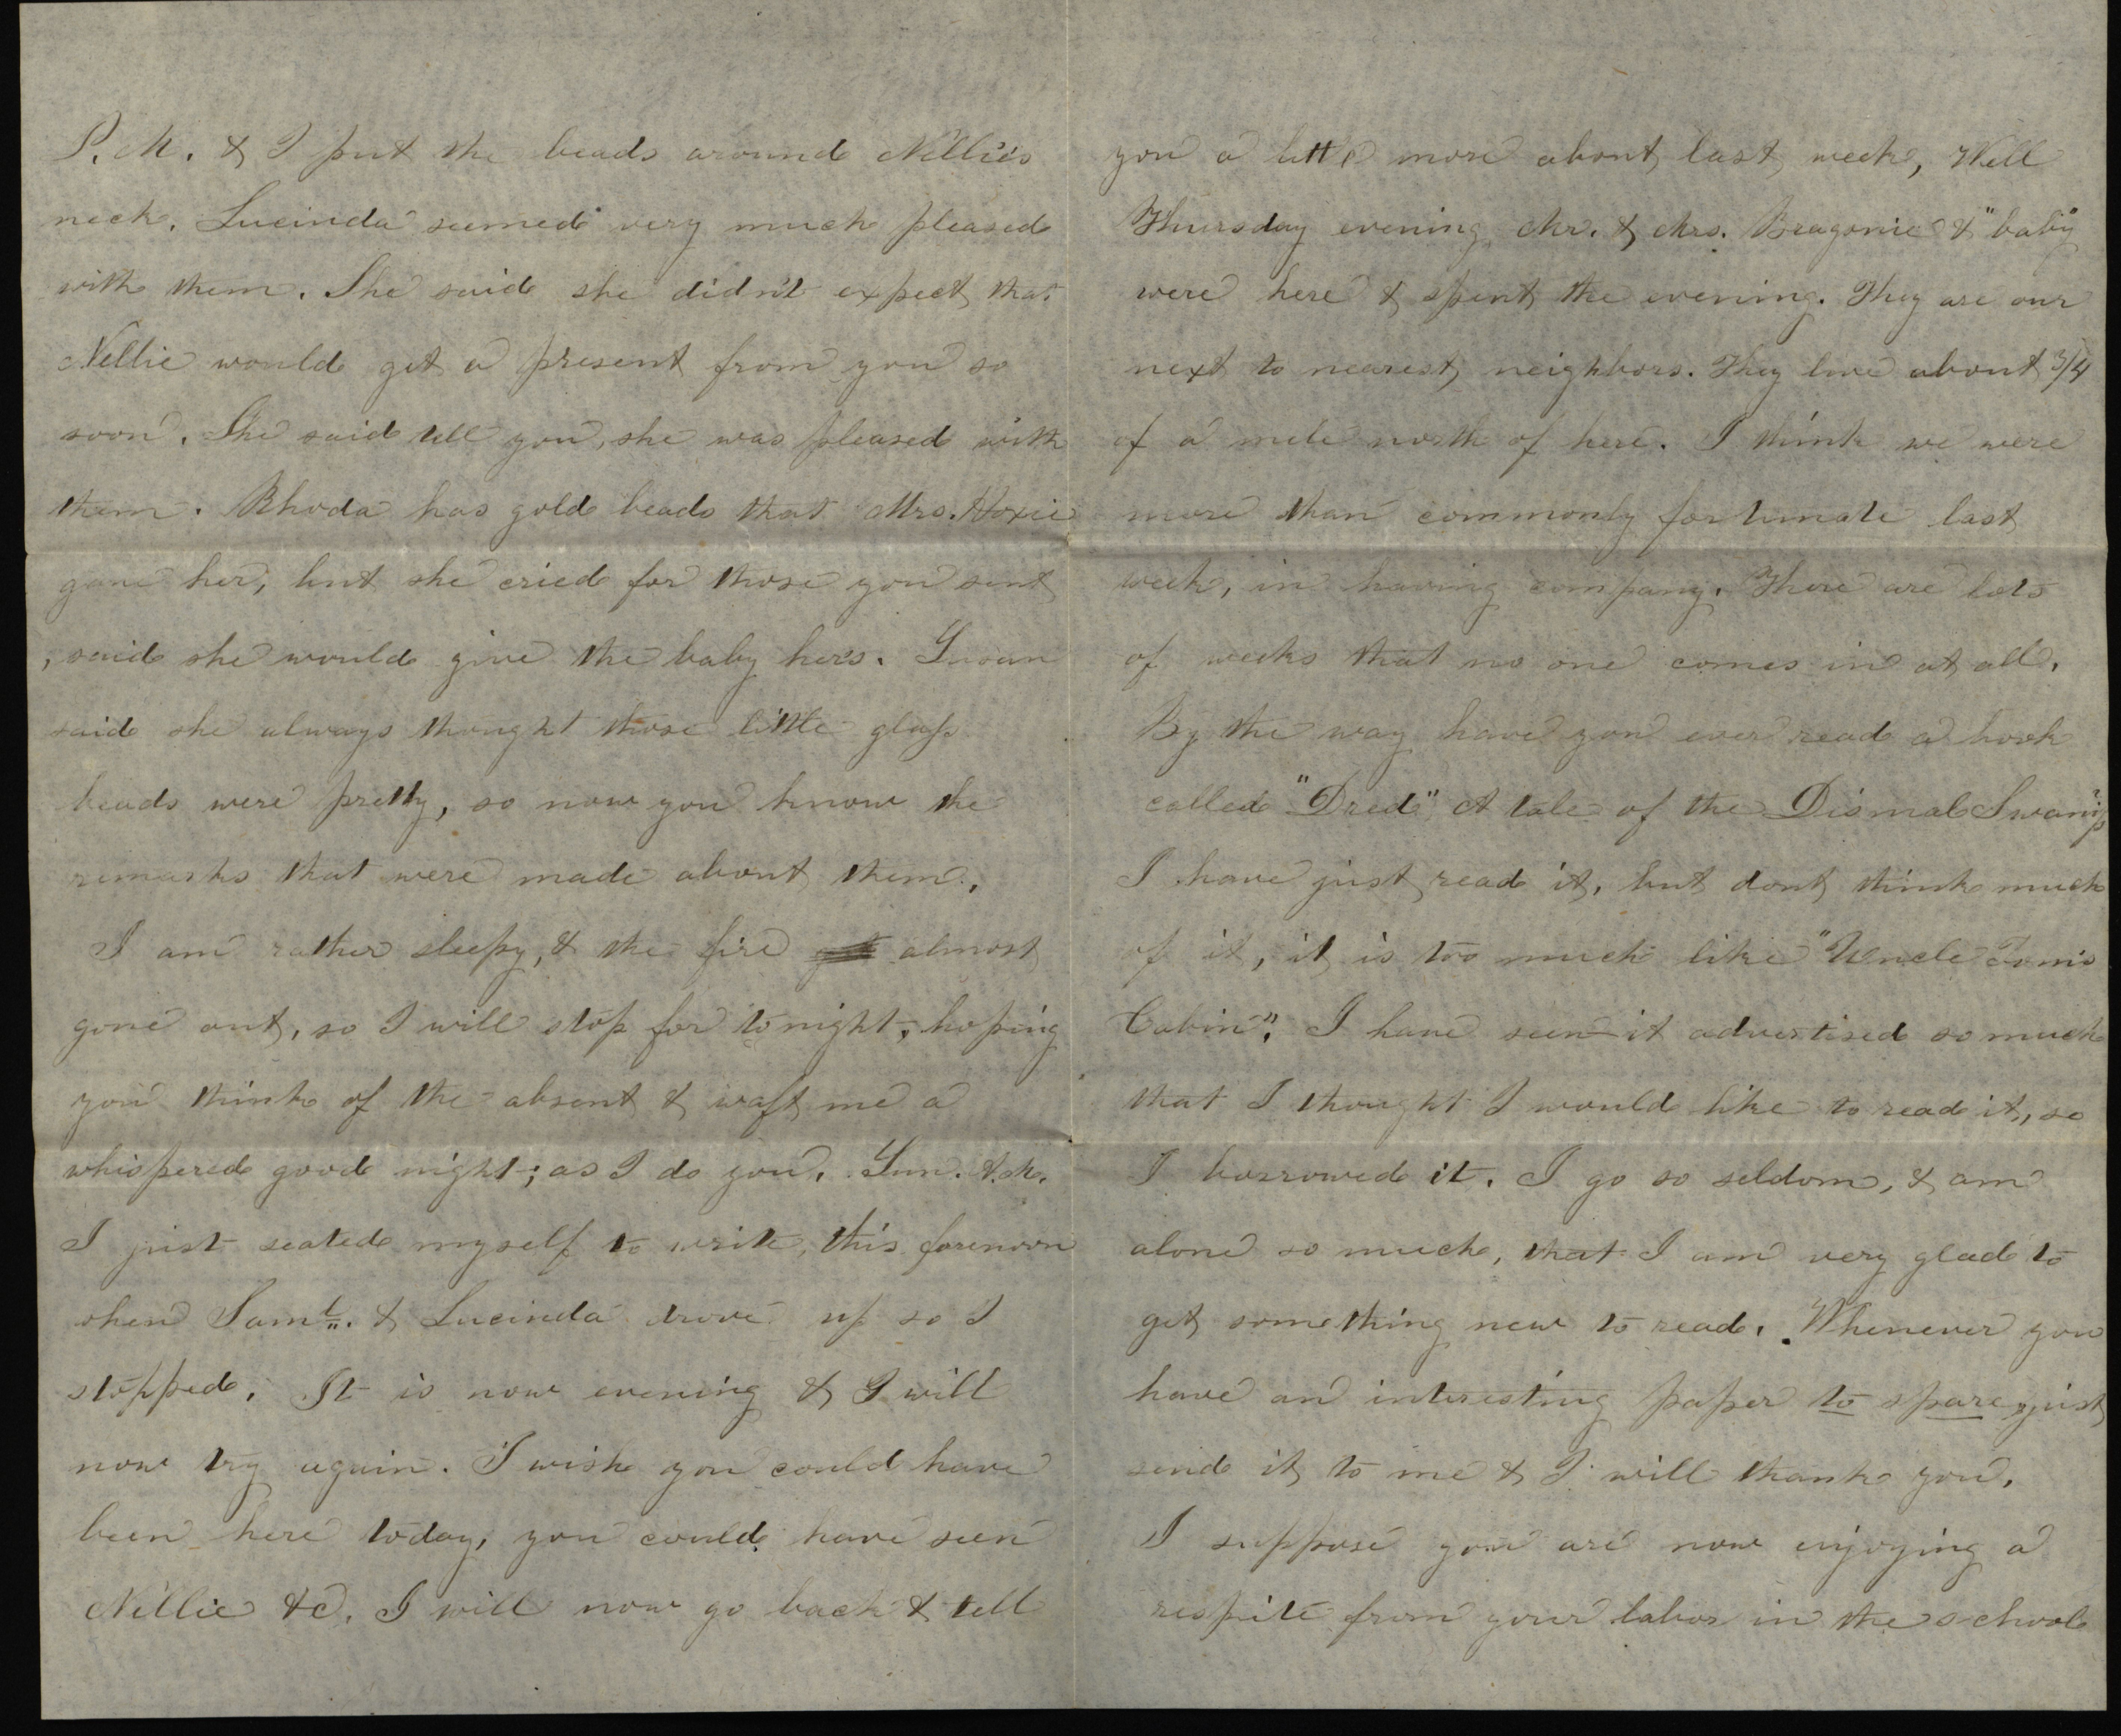 P.M. & I put the beads around Nellie's
neck. Lucinda seemed very much pleased
with them. She said she didn't expect that
Nellie would get a present from you so
soon. She said tell you, she was pleased with
them. Rhoda has gold beads that Mrs. Hoxie
gave her, but she cried for those you sent
, said she would give the baby hers. Susan
said she always thought those little glass
beads were pretty, so now you know the
remarks that were made about them.
I am rather sleepy, & the fire almost
gone out, so I will stop for to night, hoping
you think of the absent & waft me a
whispered good night; as I do you. Sun.
I just seated myself to write, this forenoon
when Saml. & Lucinda drove up so I
stopped. It is now evening & I will
now try again. I wish you could have
been here today, you could have seen
Nellie &c. I will now go back & tell
you a little more about last week, Well
Thursday evening Mr. & Mrs. Bragonie & "baby"
were here & spent the evening. They are our
next to nearest neighbors. They live about 3/4
of a mile north of here. I think we were
more than commonly fortunate last
week, in having company. There are lots
of weeks that no one comes in at all.
By the way have you ever read a book
called "Dred" A tale of the Dismal Swamp
I have just read it, but dont think much
of it, it is too much like "Uncle Tom's
Cabin". I have seen it advertised so much
that I thought I would like to read it, so
I borrowed it. I go so seldom, & am
alone so much, that I am very glad to
get something new to read. Whenever you
have an interesting paper to spare, just
send it to me & I will thank you.
I suppose you are now enjoying a
respite from your labor in the school